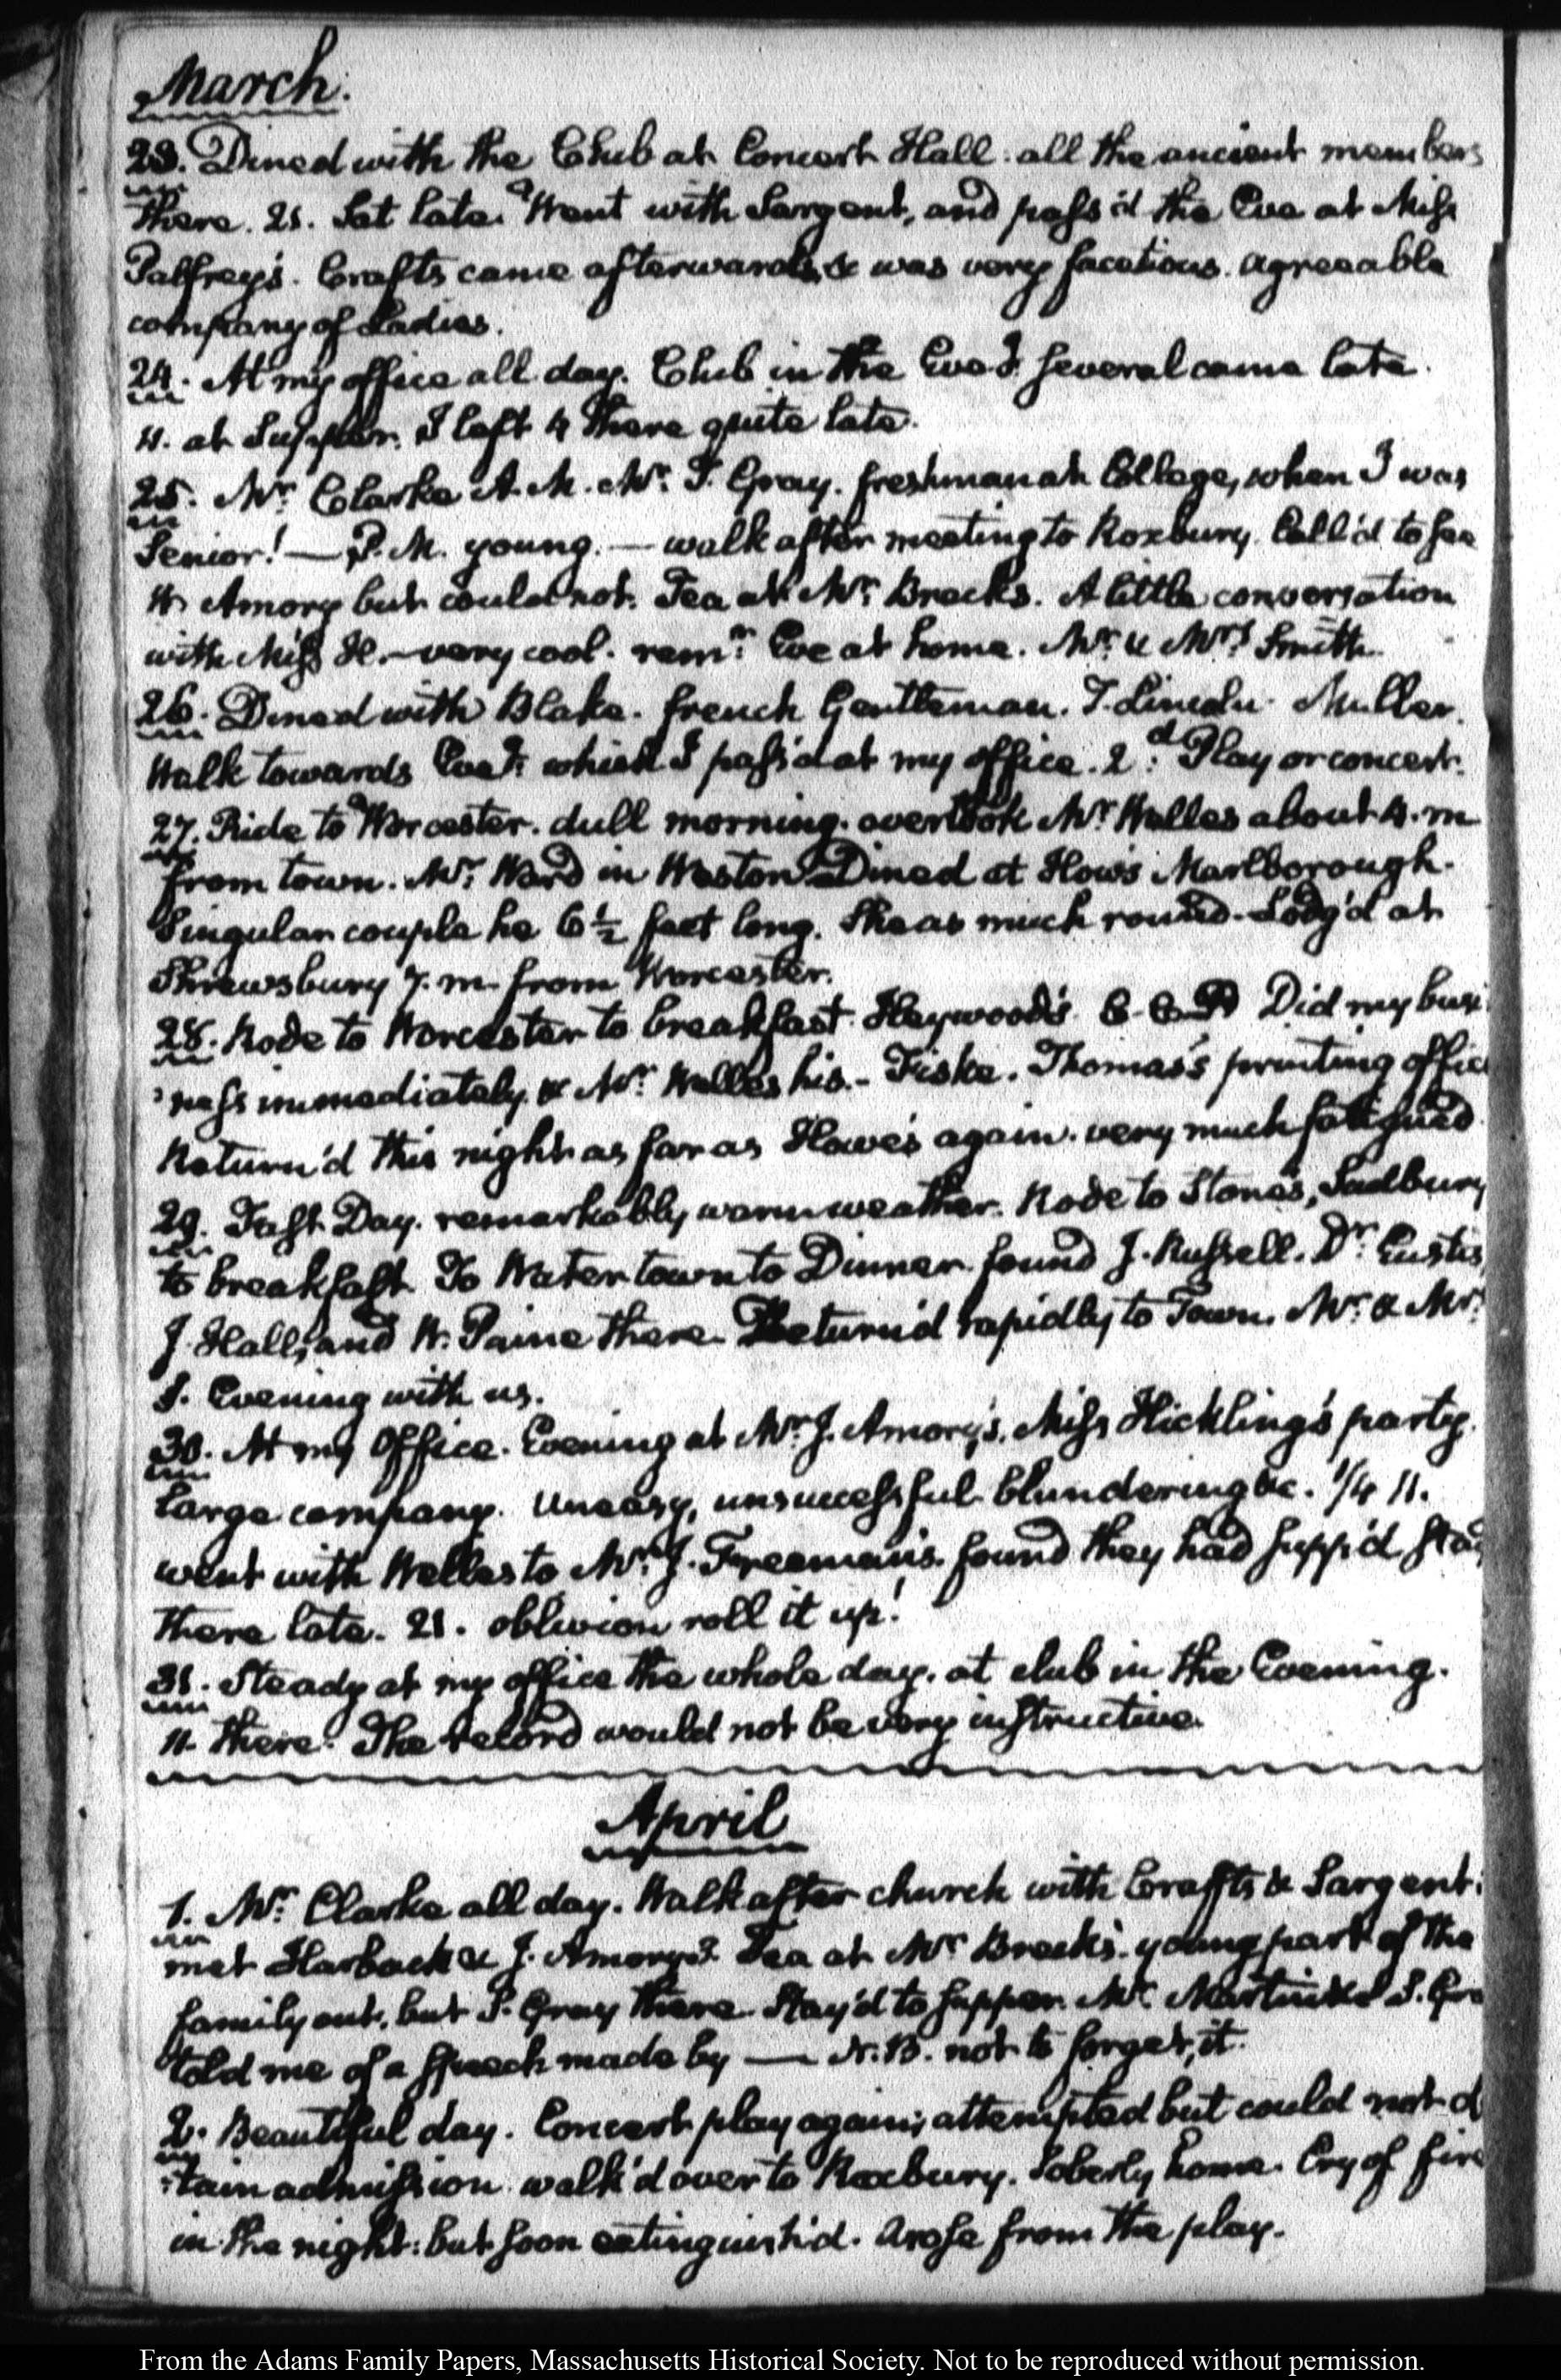 March.
23. Dined with the Club at Concert Hall. all the ancient members
there. 21. Sat late. Went with Sargent, and pass'd the Eve at Miss
Palfrey's. Crafts came afterwards, & was very facetious. agreeable
company of Ladies.
24. At my office all day. Club in the Eveg. several came late.
11. at Supper. I left 4 there quite late.
25. Mr. Clarke A.M. Mr. T. Gray. freshman at College, when I was
Senior! — P.M. young. — walk after meeting to Roxbury. Call'd to see
Amory but could not. Tea at Mr. Breck's. A little conversation
with Miss H. — very cool. remr. Eve at home. Mr. & Mrs. Smith.
26. Dined with Blake. french Gentleman. T. Lincoln. Muller.
Walk towards Eveg. which I pass'd at my office. 2d. Play or concert.
27. Ride to Worcester. dull morning. overtook Mr. Welles about 4. m
from town. Mr. Ward in Weston. Dined at How's Marlborough.
Singular couple he 6½ feet long. She as much round. Lodg'd at
Shrewsbury 7. m. from Worcester.
28. Rode to Worcester to breakfast. Heywood's. Did my busi
ness immediately. & Mr. Welles his. — Fiske. Thomas's printing office
Return'd this night as far as Howe's again. very much fatigued
29. Fast Day. remarkably warm weather. Rode to Stone's, Sudbury
to breakfast. To Watertown to Dinner. found J. Russell. Dr. Eustis,
J. Hall, and W. Paine there. Return'd rapidly to Town. Mr. & Mrs.
S. Evening with us.
30. At my Office. Evening at Mr. J. Amory's. Miss Hickling's party.
Large company. Uneasy, unsuccessful blundering &c. 1/4 11.
went with Welles to Mr. J. Freeman's. found they had supp'd. stay
there late. 21. oblivion roll it up!
31. Steady at my office the whole day. at club in the Evening.
11. there. The record would not be very instructive.
April
1. Mr. Clarke all day. Walk after church with Crafts & Sargent:
met Harback & J. Amory. Tea at Mr. Breck's. young part of the
family out. but S. Gray there. Stay'd to supper. Mr. S. Gra
told me of a speech made by — N.B. not to forget, it.
2. Beautiful day. Concert play again; attempted but could not
:tain admission. walk'd over to Roxbury. Soberly home. Cry of fire
in the night: but soon extinguish'd. Arose from the play.
From the Adams Family Papers, Massachusetts Historical Society. Not to be reproduced without permission.